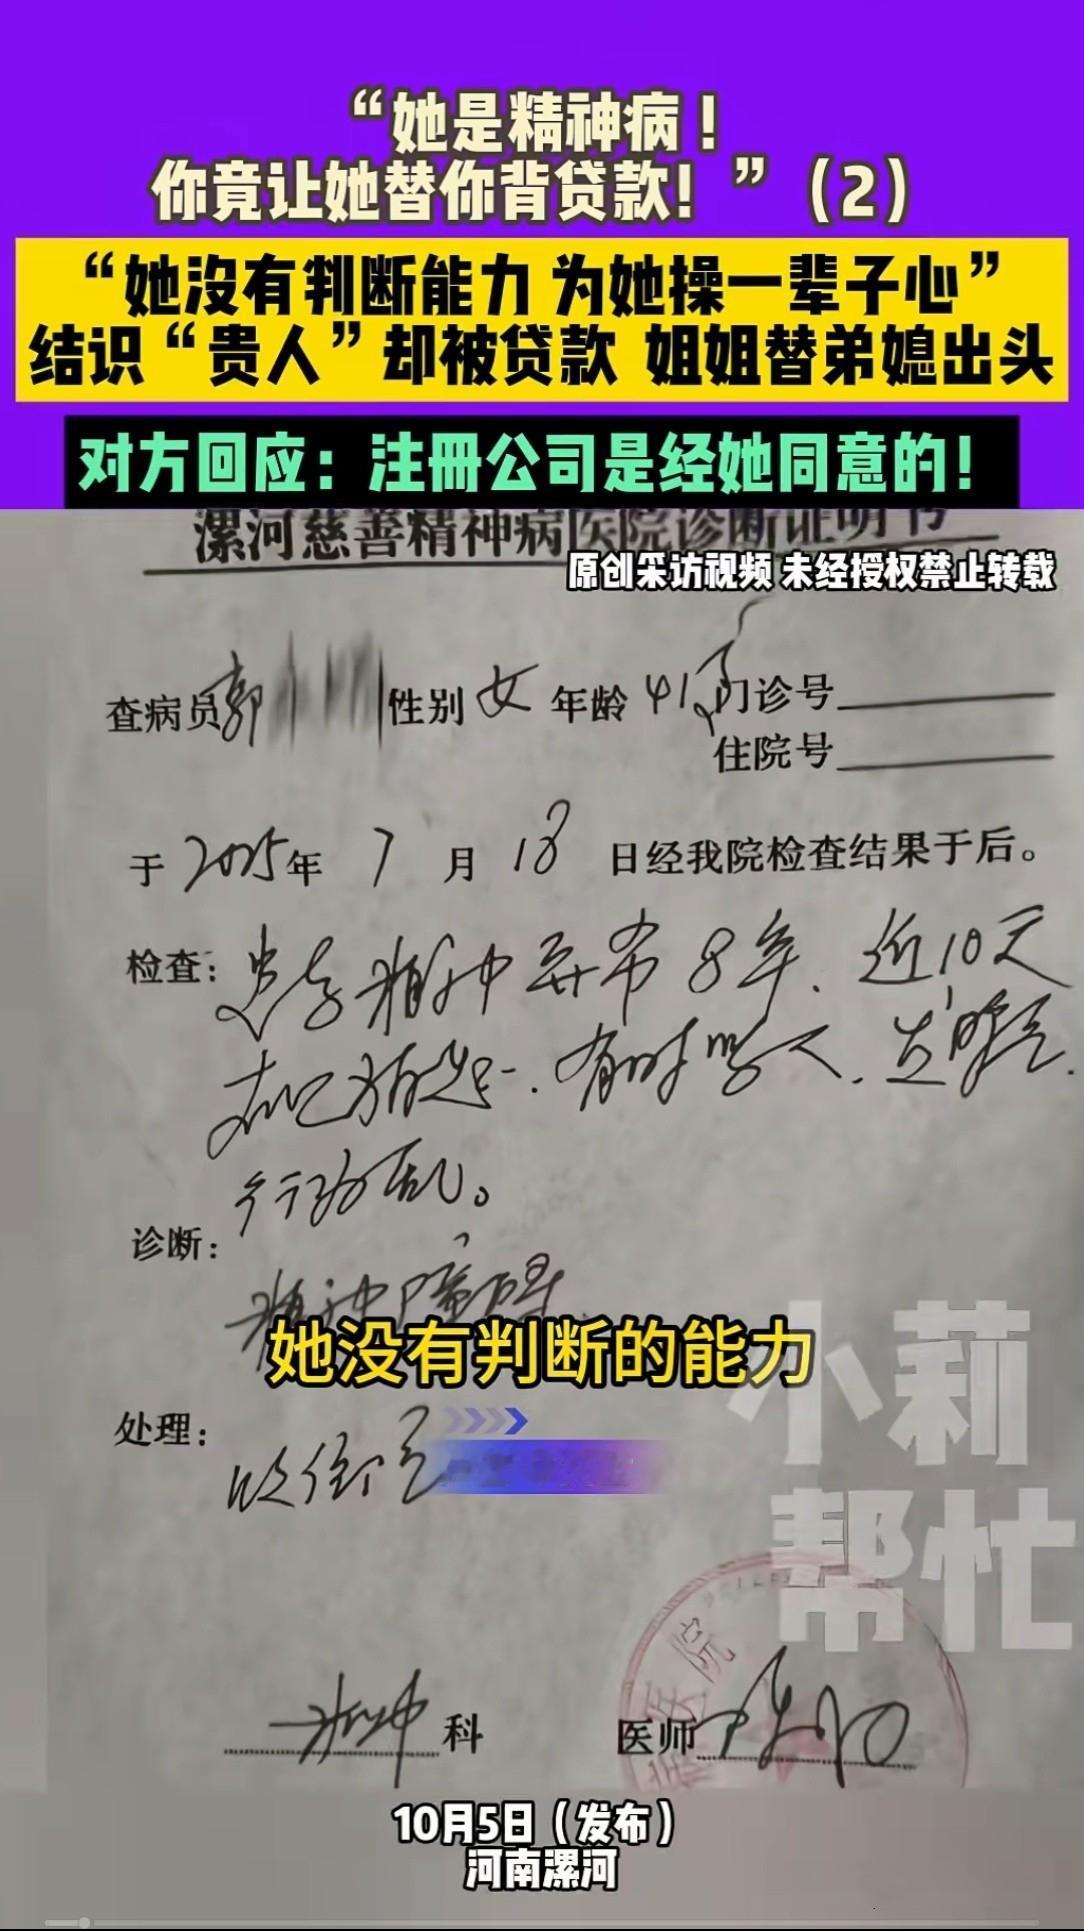 “她是精神病！
你竟让她替你背贷款！”（2）
“她没有判断能力 为她操一辈子心”
结识“贵人”却被贷款 姐姐替弟媳出头
对方回应：注册公司是经她同意的！
漯河慈善精神病医院诊断证明书
原创采访视频 未经授权禁止转载
查病员郭 性别 女 年龄 41岁 门诊号
住院号
于 2025年 7 月 18 日经我院检查结果于后。
检查：患者精神异常8年、近10天
有时骂人、
行为乱。
诊断：
精神障碍
她没有判断的能力
处理：
收住
小莉
帮忙
精神 科 医师
医院
10月5日（发布）
河南漯河